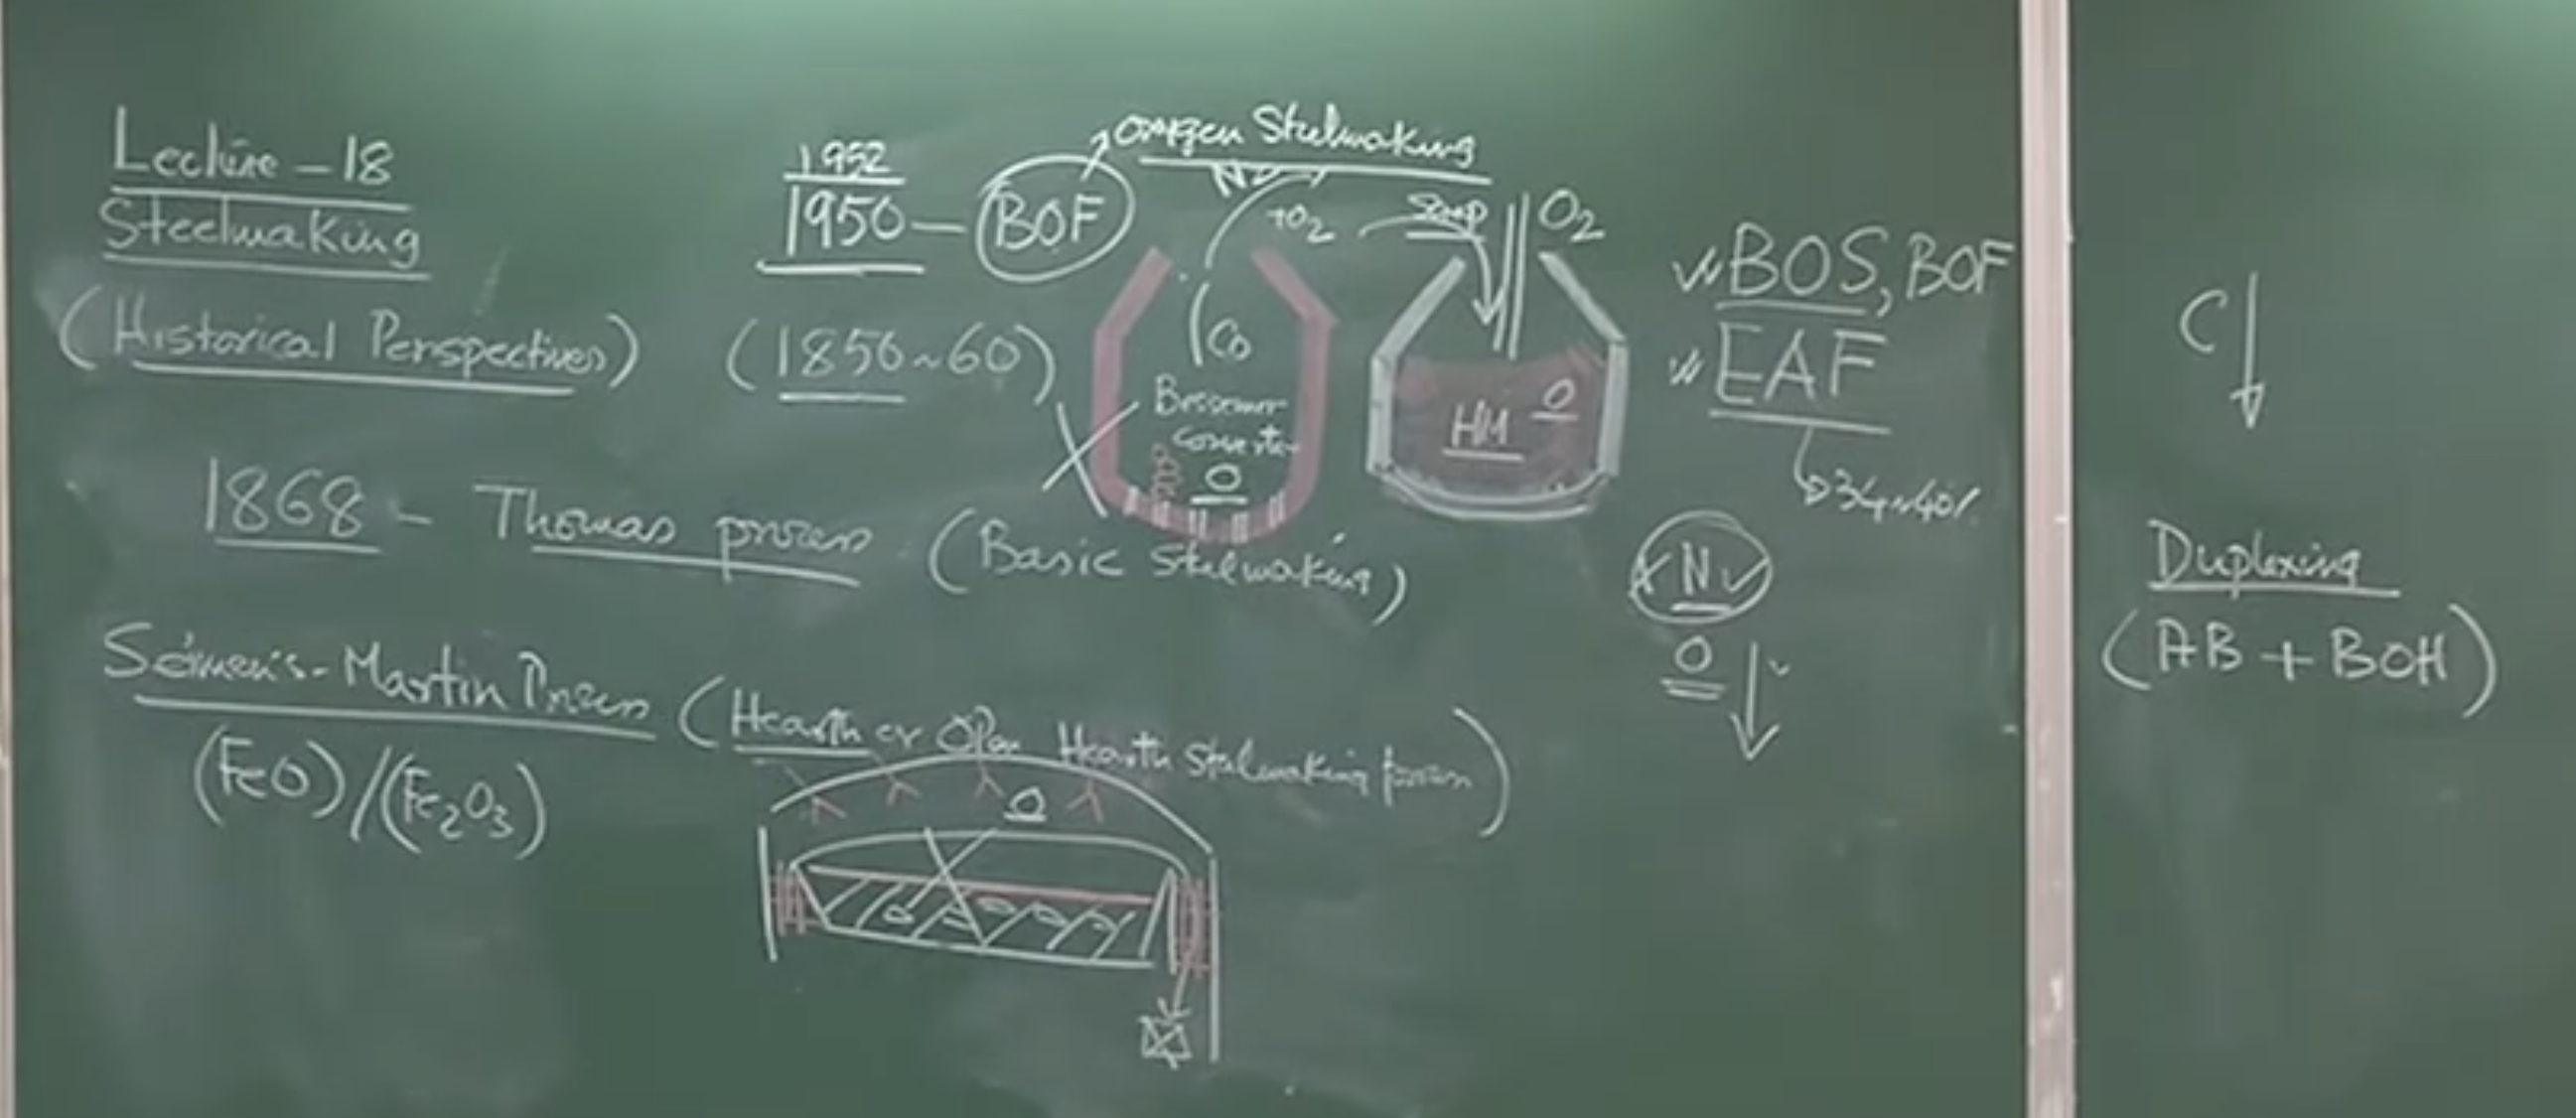 Lecture - 18
Steelmaking
(Historical Perspectives)
1952
1950 - BOF
Oxygen Steelmaking
N2
+O2
Scrap
O2
(1856~60)
CO
Bessemer
Converter
O
HM O
BOS, BOF
EAF
34~40%
1868 - Thomas process (Basic Steelmaking)
N
O
Siemens-Martin Process (Hearth or Open Hearth Steelmaking process)
(FeO)/(Fe2O3)
O
C
Duplexing
(AB + BOH)